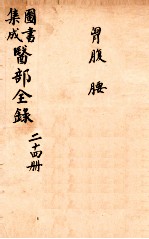 胷腹 腰
圖書
集成
醫部全錄 二十四册